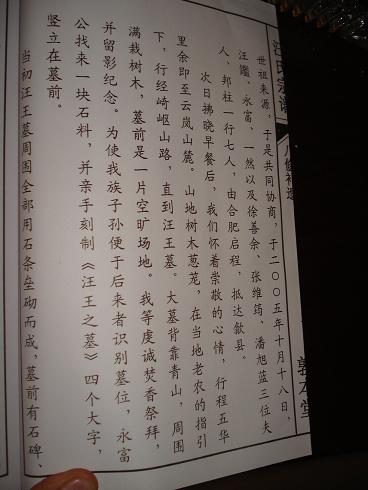 汪氏宗谱
八修补遗
敦本堂
世祖来源，于是共同协商，于二〇〇五年十月十八日，
汪鑑、永富、一然以及徐善余、张维筠、潘旭蓝三位夫
人、邦柱一行七人，由合肥启程，抵达歙县。
次日拂晓早餐后，我们怀着崇敬的心情，行程五华
里余即至云岚山麓。山地树木葱茏，在当地老农的指引
下，行经崎岖山路，直到汪王墓。大墓背靠青山，周围
满栽树木，墓前是一片空旷场地。我等虔诚焚香祭拜，
并留影纪念。为使我族子孙便于后来者识别墓位，永富
公找来一块石料，并亲手刻制《汪王之墓》四个大字，
竖立在墓前。
当初汪王墓周围全部用石条垒砌而成，墓前有石碑、